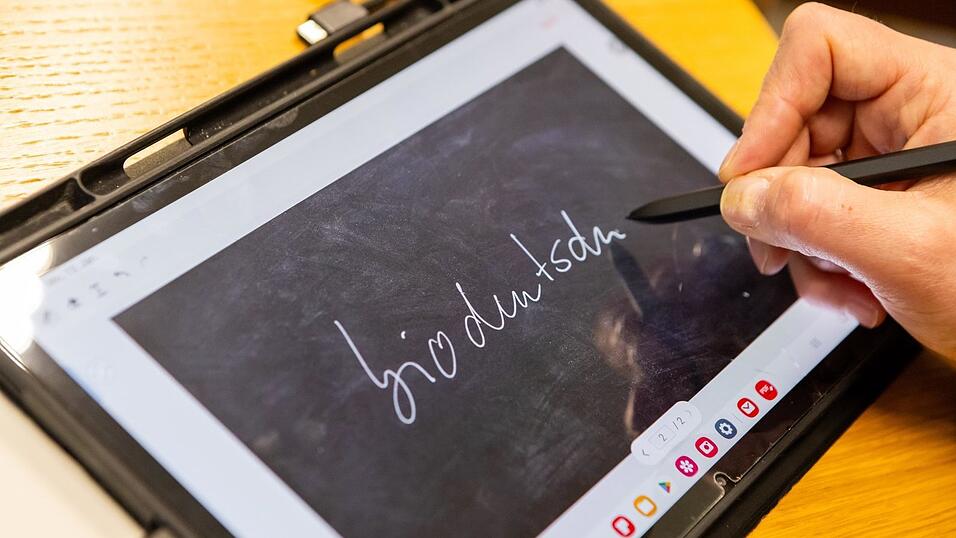 biodeutsch
2 / 2